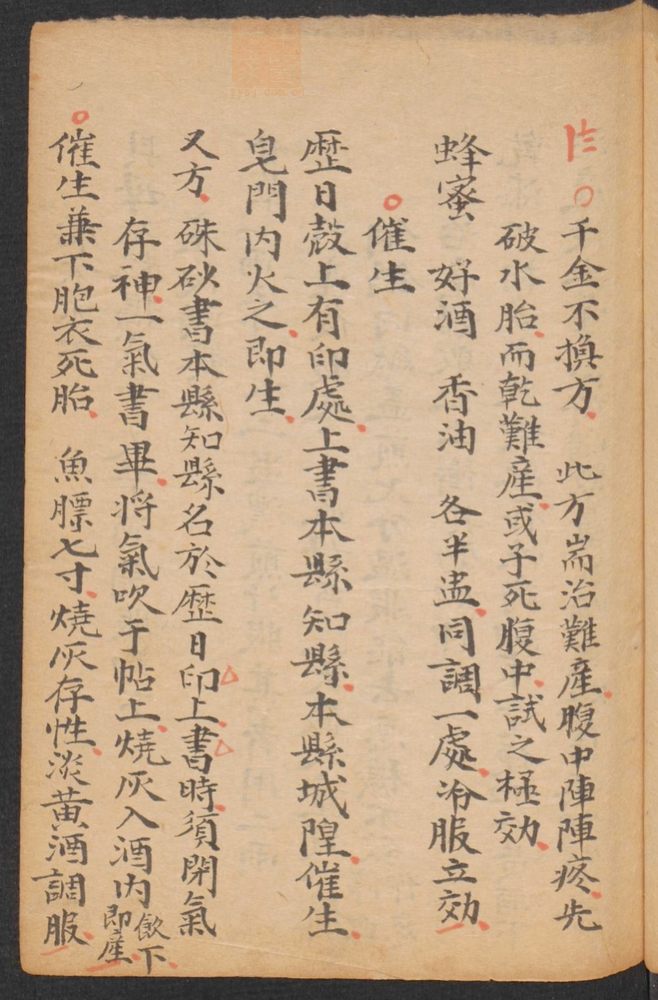 千金不換方 此方耑治難產腹中陣陣疼先
破水胎而乾難產或子死腹中試之極効
蜂蜜 好酒 香油 各半盅同調一處冷服立効
催生
歷日殼上有印處上書本縣知縣本縣城隍催生
皂門内火之即生
又方 硃砂書本縣知縣名於歷日印上書時須閉氣
存神一氣書畢將氣吹于帖上燒灰入酒内飲下即產
催生兼下胞衣死胎 魚膘七寸燒灰存性淡黃酒調服